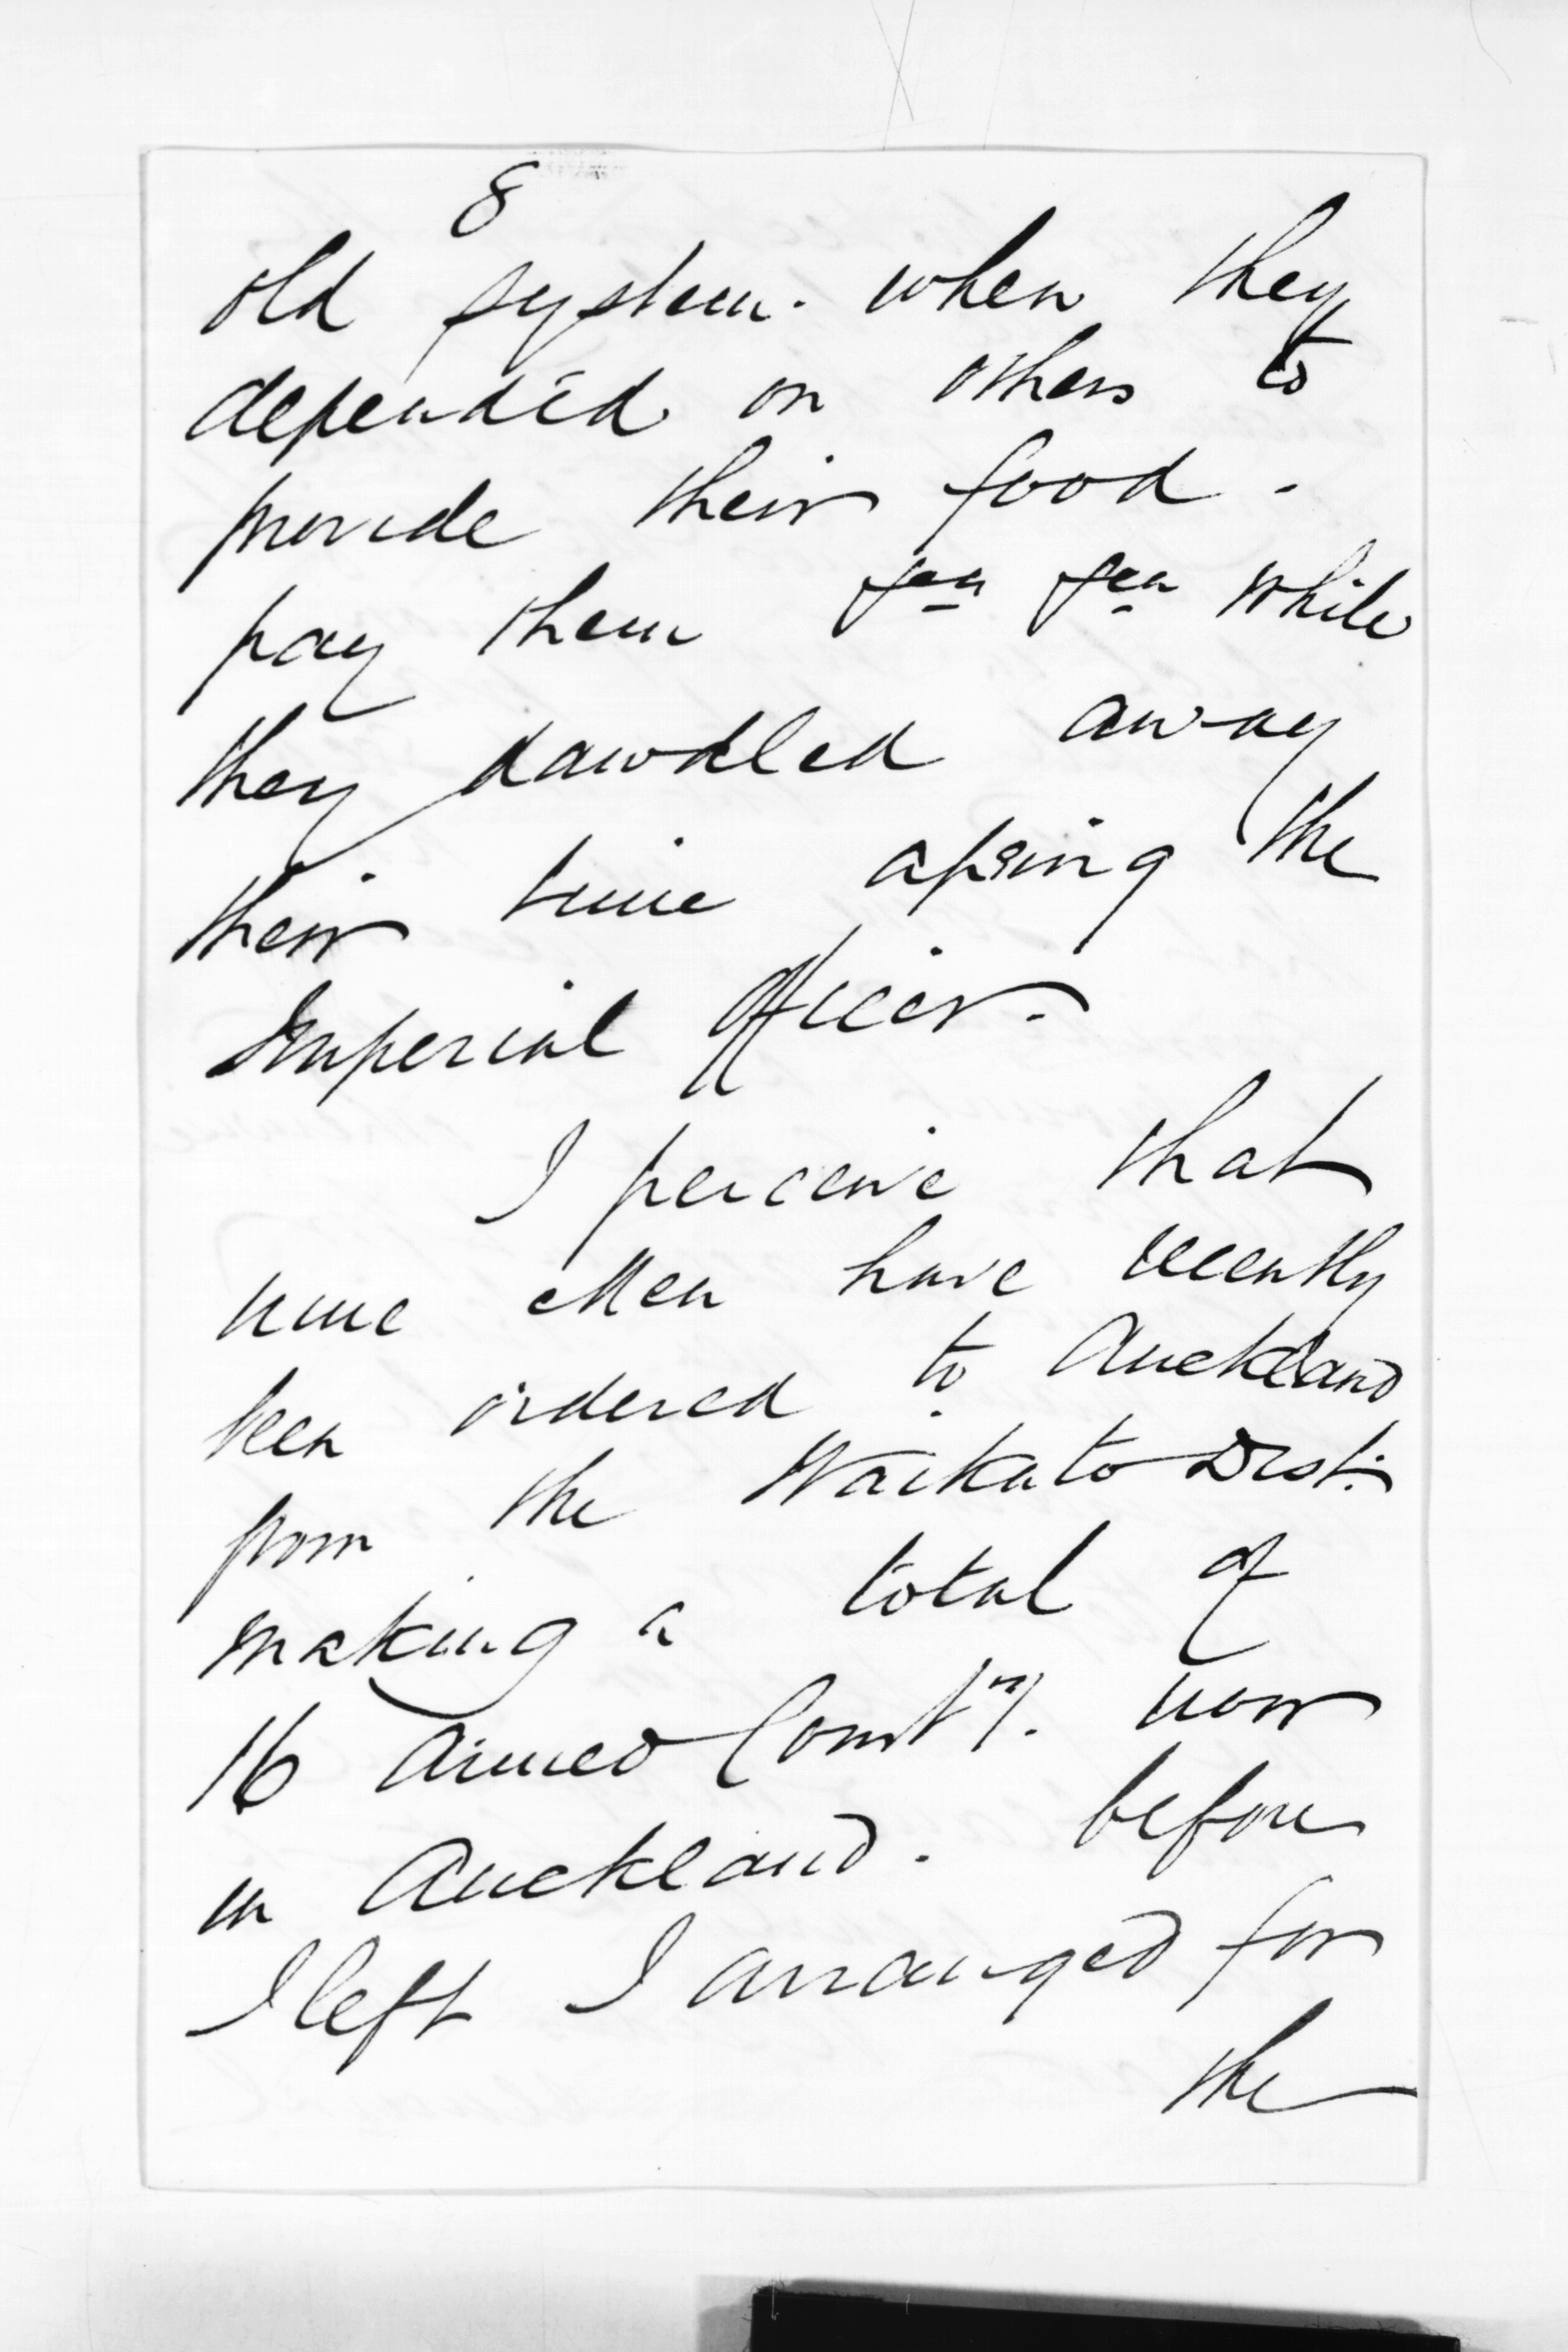 8
old system. when they
depended on others to
provide their food.
pay them &ca &ca while
they dawdled away
their time apeing the
Imperial Officer.
I perceive that
nine Men have recently
been ordered to Auckland
from the Waikato Dist:
making a total of
16 Armed Const.y. now
in Auckland. before
I left I arranged for
the